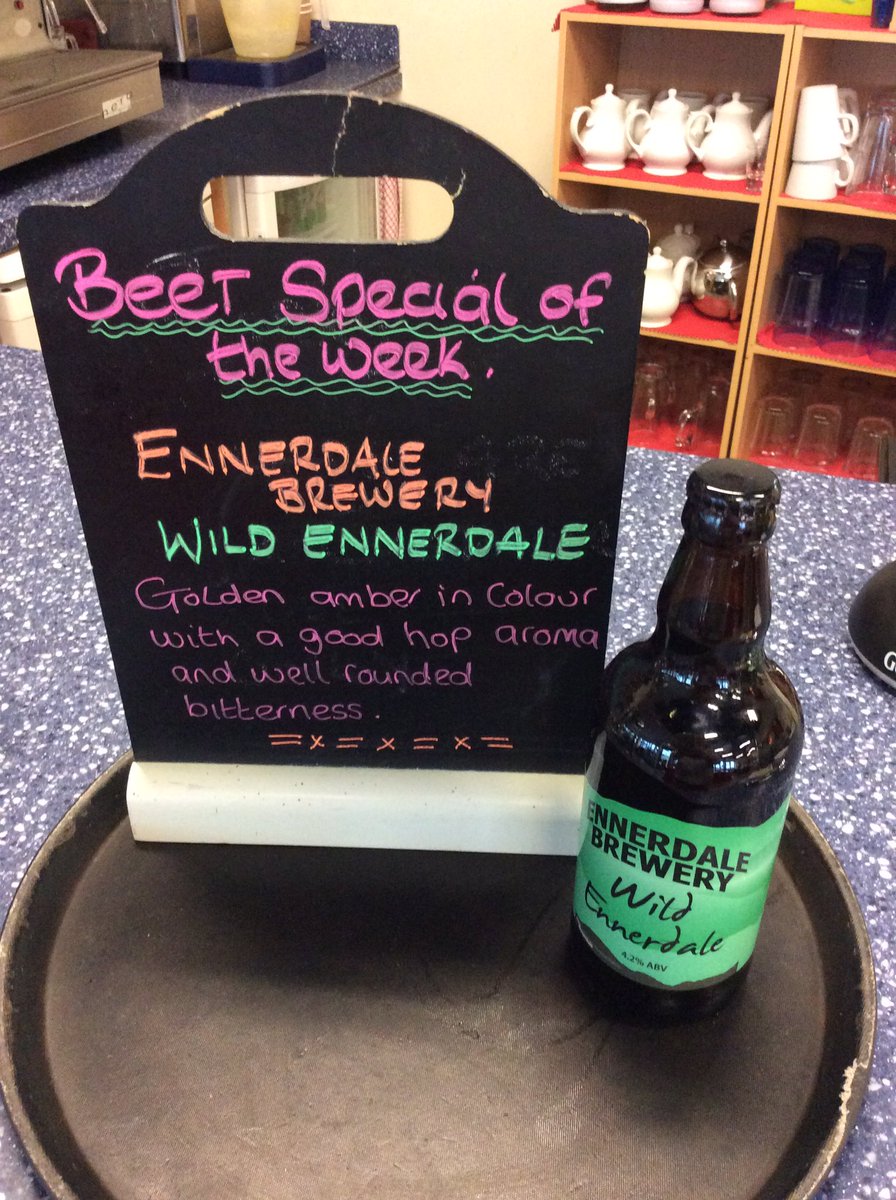 BeeT Speciál of
the week.
ENNERDALE
BREWERY
WILD ENNERDALE
Golden amber in colour
with a good hop aroma
and well rounded
bitterness.
=x=x=x=
ENNERDALE
BREWERY
Wild
Ennerdale
4.2% ABV
G